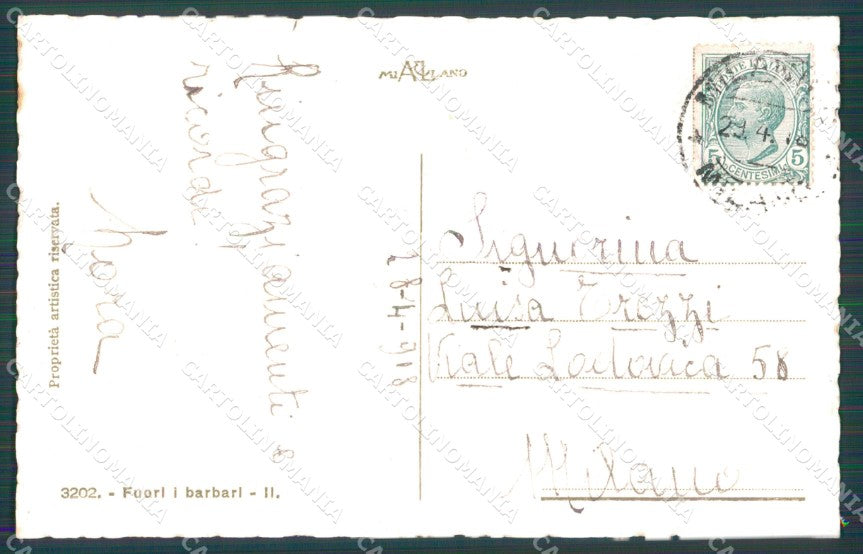 Ringraziamenti e
ricordi
Nora
28-4-918
Proprietà artistica riservata.
3202. - Fuori i barbari - II.
MILANO
29.4.18
5 CENTESIMI 5
Signorina
Luisa Trezzi
Viale Lodovica 58
Milano
CARTOLINOMANIA